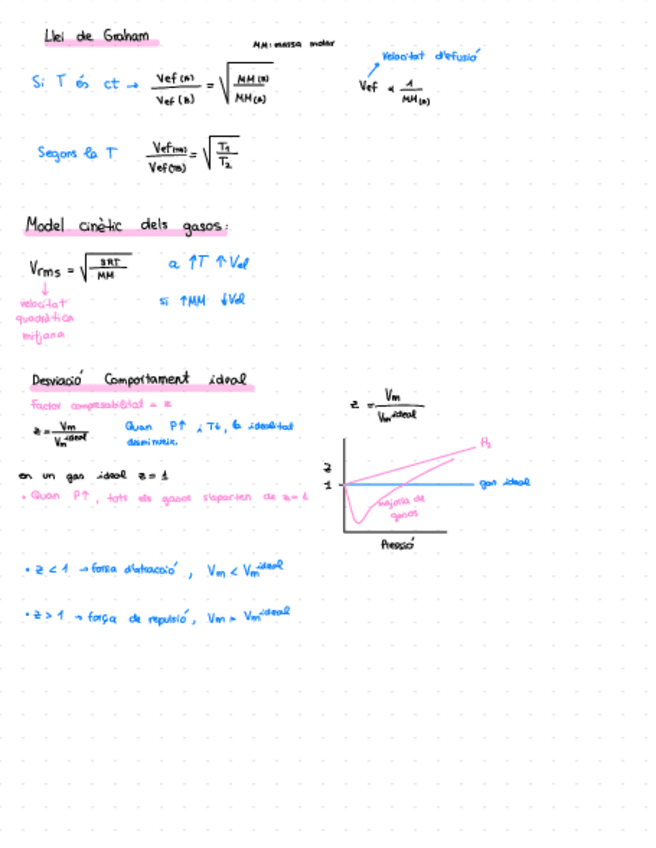 Llei de Graham
MM: massa molar
Velocitat d'efusió
Si T és ct → Vef (A) / Vef (B) = √(MM(B) / MM(A))
Vef ∝ 1 / MM(A)
Segons la T Vef(T1) / Vef(T2) = √(T1 / T2)
Model cinètic dels gasos:
Vrms = √(3RT / MM)
a ↑T ↑Vel
si ↑MM ↓Vel
↓
velocitat
quadràtica
mitjana
Desviació Comportament ideal
Factor compresabilitat = z
z = Vm / Vm ideal
z = Vm / Vm ideal
Quan P↑ i T↓, la idealitat
disminueix.
en un gas ideal z = 1
• Quan P↑, tots els gasos s'aparten de z=1
H2
z
1
gas ideal
majoria de
gasos
Pressió
• z < 1 → força d'atracció, Vm < Vm ideal
• z > 1 → força de repulsió, Vm > Vm ideal